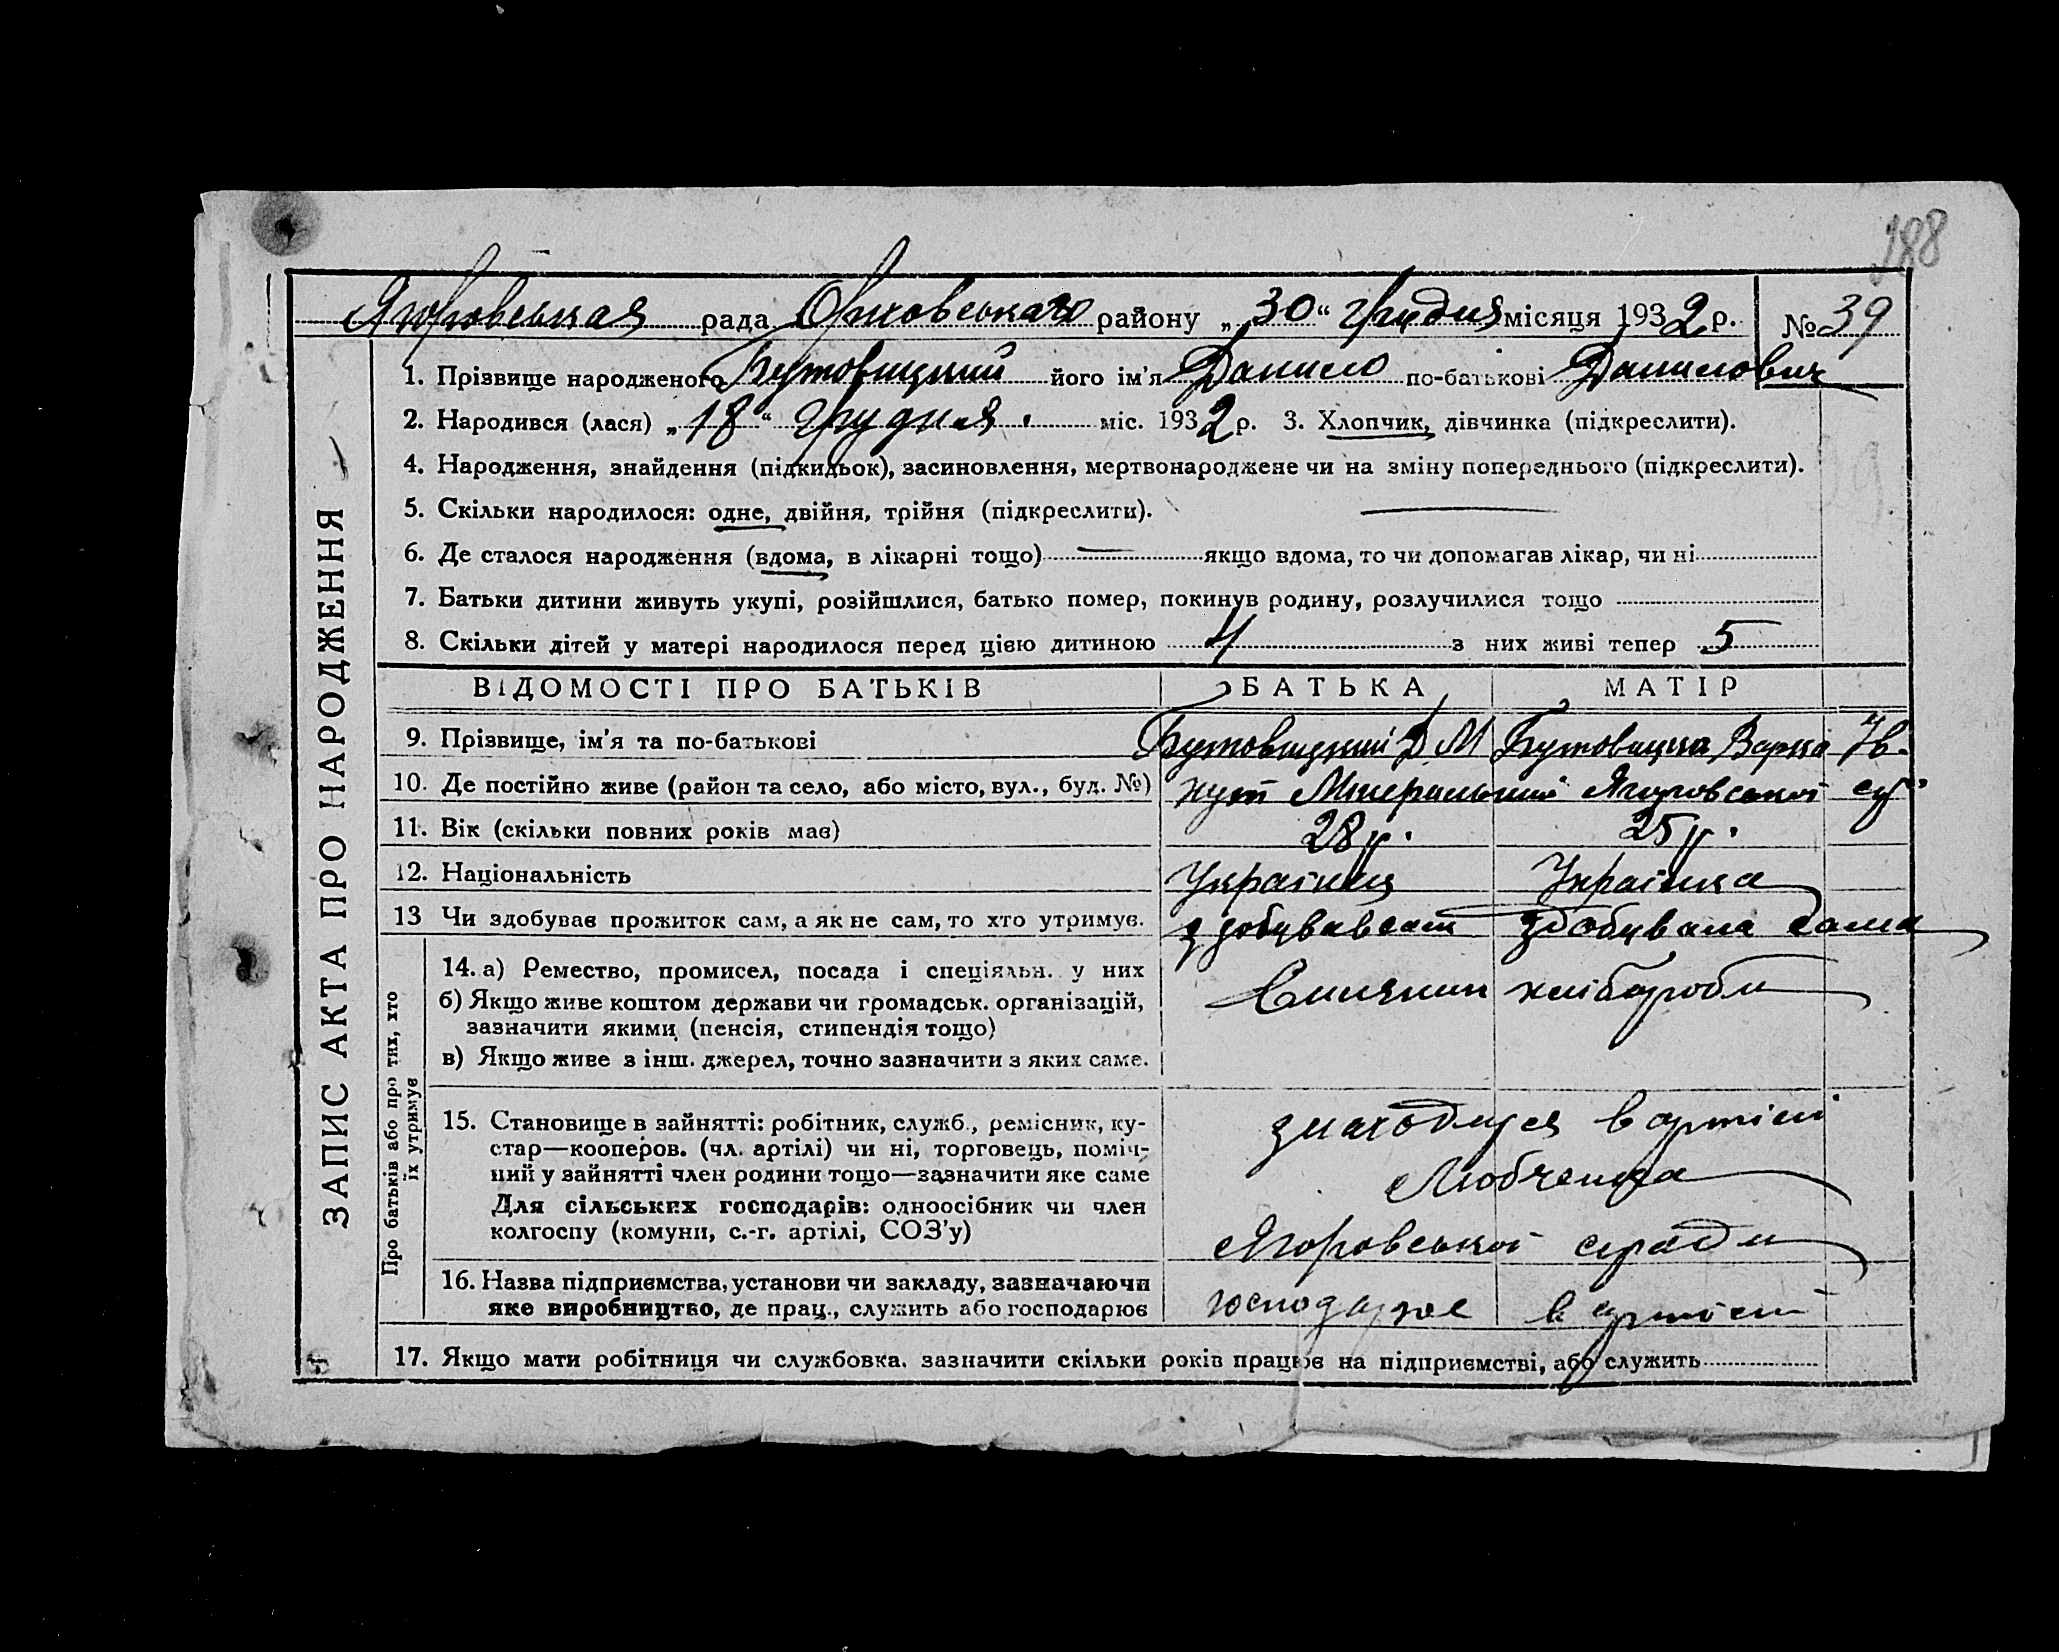 188
Ягоровськая рада Оржовського району „30“ грудня місяця 1932 р. № 39
ЗАПИС АКТА ПРО НАРОДЖЕННЯ
1. Прізвище народженого Бутовицкий його ім'я Данило по-батькові Данилович
2. Народився (лася) „18“ грудня міс. 1932 р. 3. Хлопчик, дівчинка (підкреслити).
4. Народження, знайдення (підкидьок), засиновлення, мертвонароджене чи на зміну попереднього (підкреслити).
5. Скільки народилося: одне, двійня, трійня (підкреслити).
6. Де сталося народження (вдома, в лікарні тощо) — якщо вдома, то чи допомагав лікар, чи ні
7. Батьки дитини живуть укупі, розійшлися, батько помер, покинув родину, розлучилися тощо
8. Скільки дітей у матері народилося перед цією дитиною 4 з них живі тепер 5
ВІДОМОСТІ ПРО БАТЬКІВ БАТЬКА МАТІР
9. Прізвище, ім'я та по-батькові Бутовицкий Д М Бутовицка Варка
10. Де постійно живе (район та село, або місто, вул., буд. №) хут Ягоровської
11. Вік (скільки повних років має) 28 р. 25 р.
12. Національність Українец Українка
13 Чи здобуває прожиток сам, а як не сам, то хто утримує. здобував сам здобувала сама
Про батьків або про тих, хто їх утримує
14. а) Ремество, промисел, посада і спеціяльн. у них хліборобли
б) Якщо живе коштом держави чи громадськ. організацій,
зазначити якими (пенсія, стипендія тощо)
в) Якщо живе з інш. джерел, точно зазначити з яких саме.
15. Становище в зайнятті: робітник, служб., ремісник, ку-
стар—кооперов. (чл. артілі) чи ні, торговець, поміч-
ний у зайнятті член родини тощо—зазначити яке саме
Для сільських господарів: одноосібник чи член
колгоспу (комуни, с.-г. артілі, СОЗ'у)
знаходится в артілі
Любченка
Ягоровської сіради
16. Назва підприємства, установи чи закладу, зазначаючи
яке виробництво, де прац., служить або господарює
господарює в артілі
17. Якщо мати робітниця чи службовка, зазначити скільки років працює на підприємстві, або служить